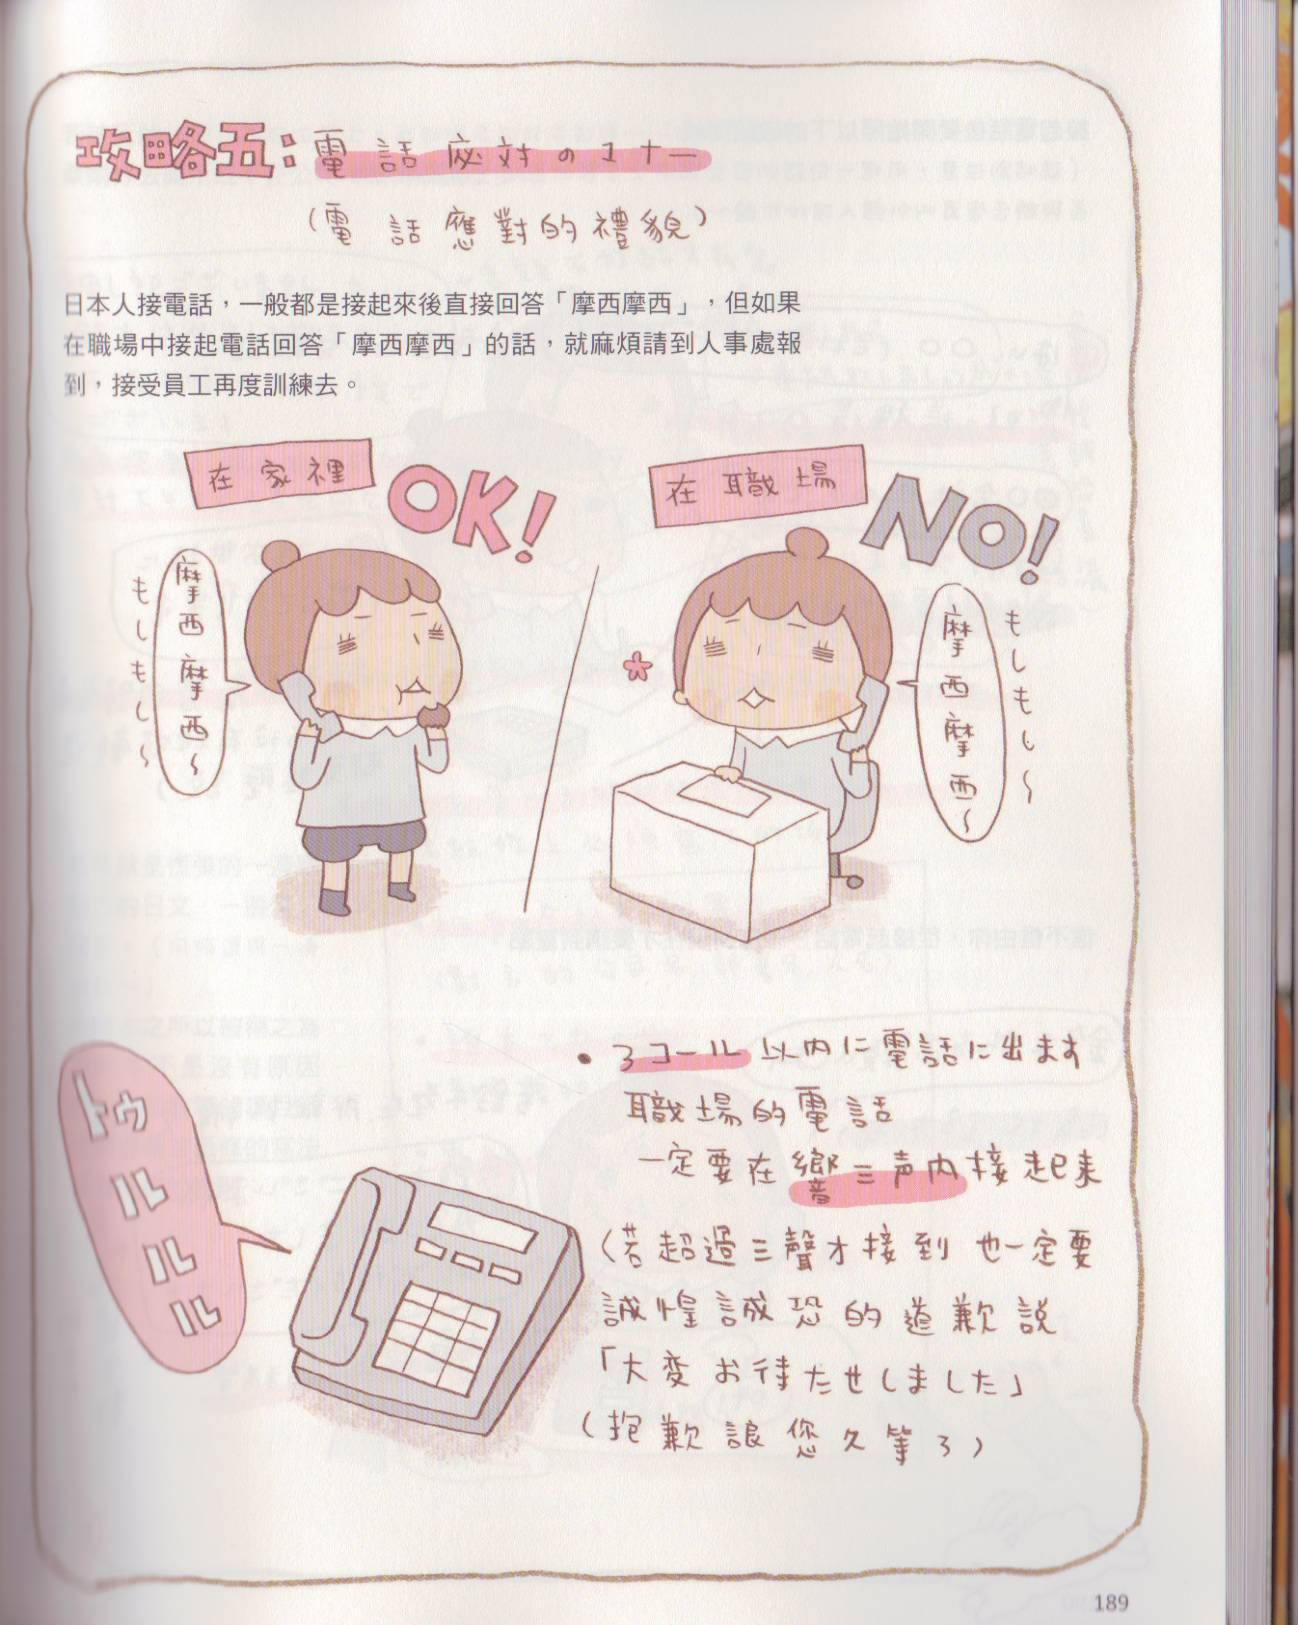 攻略五：電話応対のマナー
（電話應對的禮貌）
日本人接電話，一般都是接起來後直接回答「摩西摩西」，但如果
在職場中接起電話回答「摩西摩西」的話，就麻煩請到人事處報
到，接受員工再度訓練去。
在家裡
OK!
摩西摩西～
もしもし～
在職場
NO!
摩西摩西～
もしもし～
トゥルルルル
• 3コール以内に電話に出ます
職場的電話
一定要在響三声内接起来
（若超過三聲才接到 也一定要
誠惶誠恐的道歉説
「大変お待たせしました」
（抱歉讓您久等了）
189